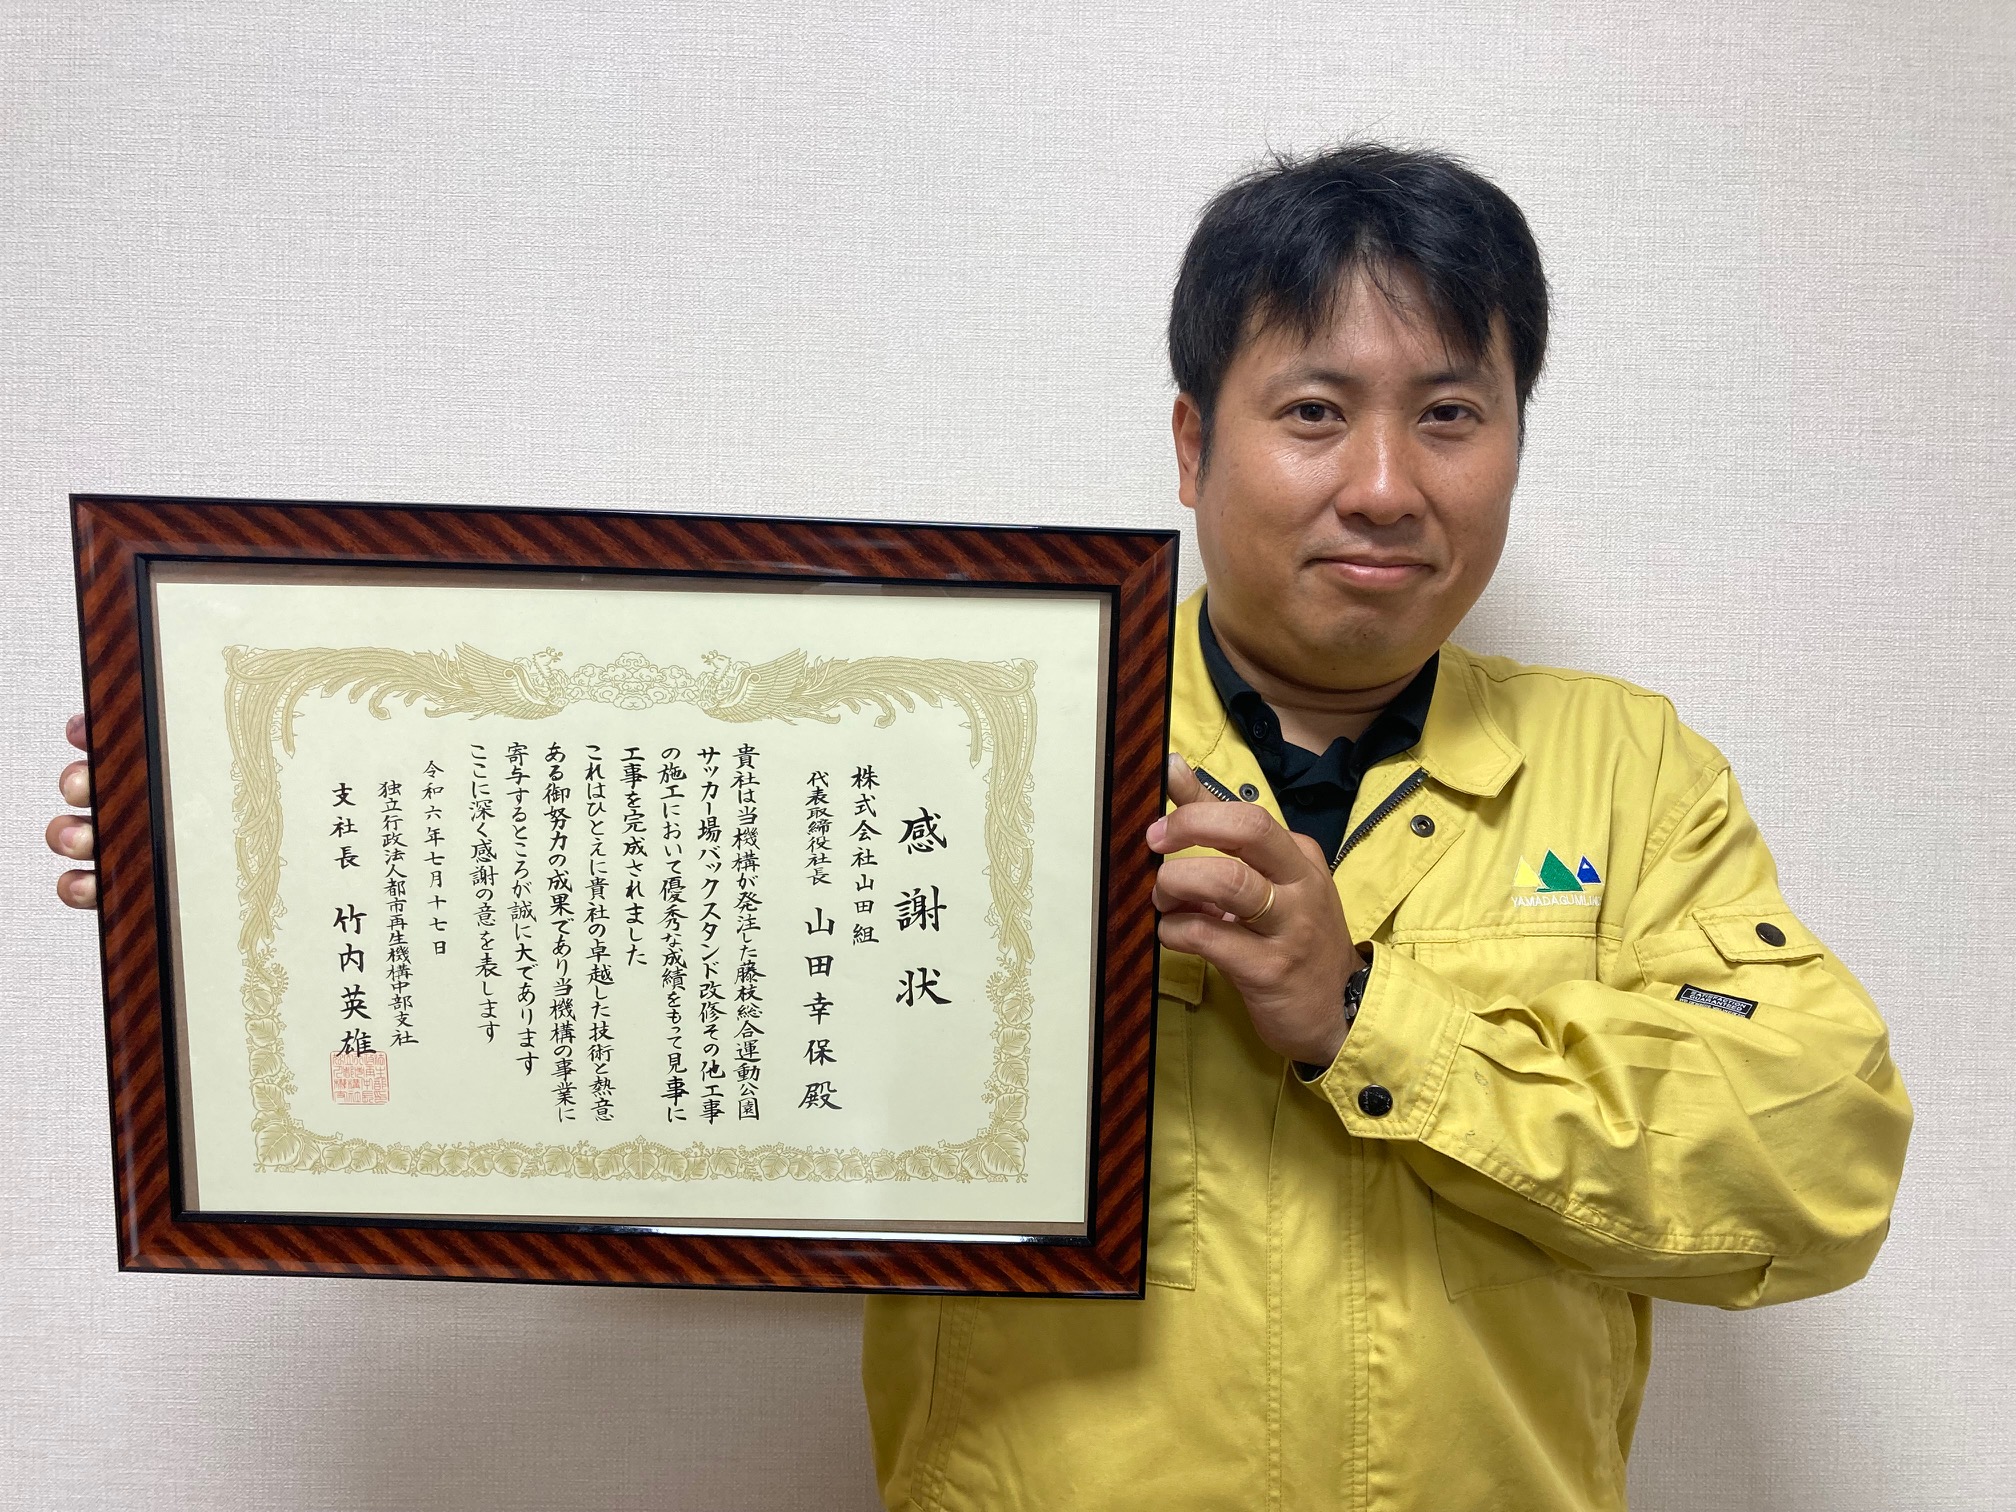 感謝状
株式会社山田組
代表取締役社長 山田幸保殿
貴社は当機構が発注した藤枝総合運動公園
サッカー場バックスタンド改修その他工事
の施工において優秀な成績をもって見事に
工事を完成されました
これはひとえに貴社の卓越した技術と熱意
ある御努力の成果であり当機構の事業に
寄与するところが誠に大であります
ここに深く感謝の意を表します
令和六年七月十七日
独立行政法人都市再生機構中部支社
支社長 竹内英雄
YAMADAGUMI